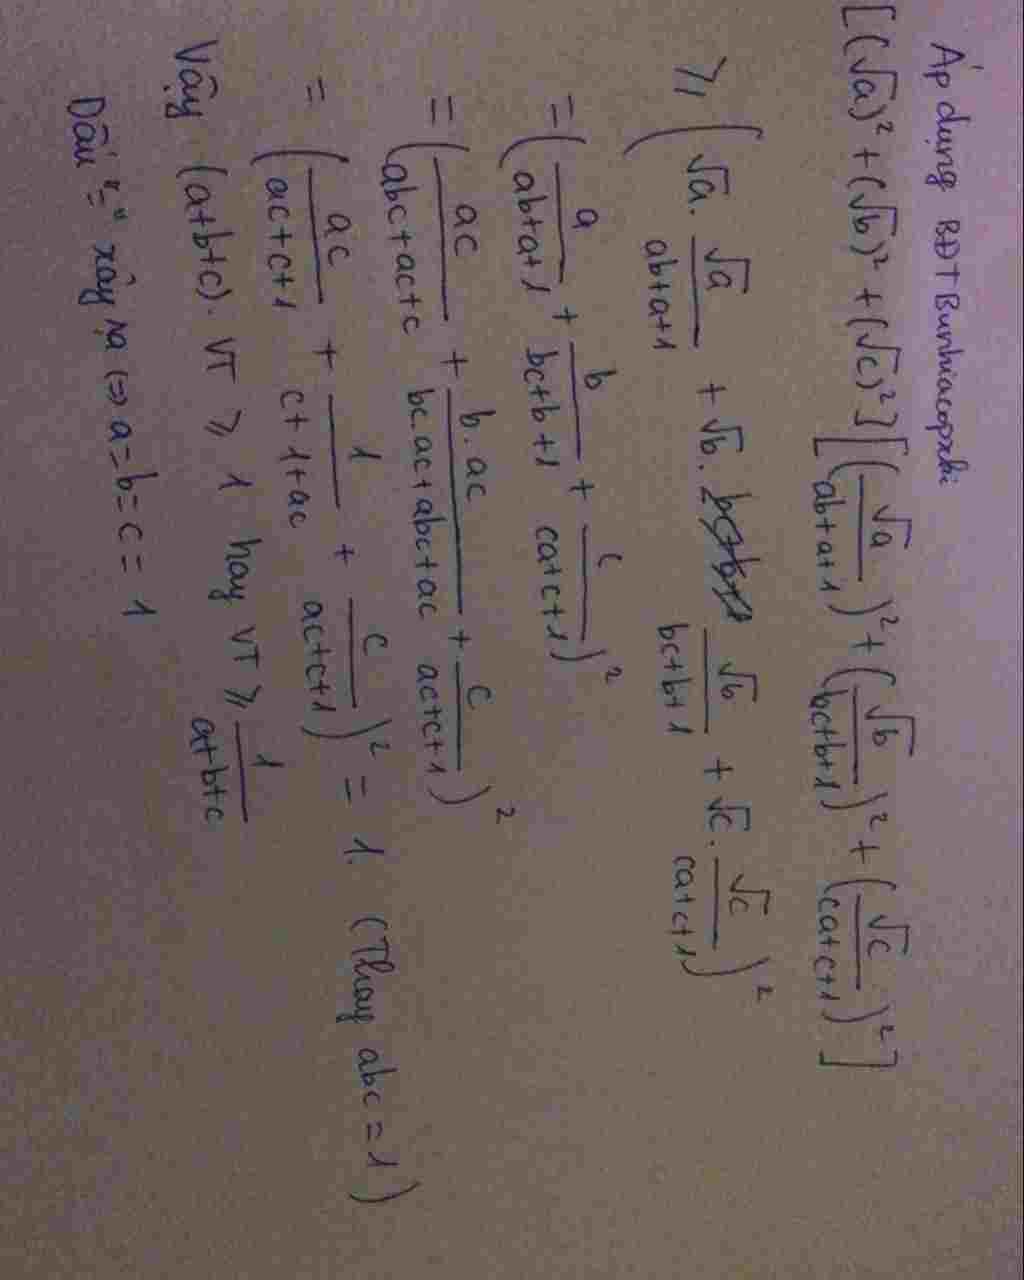 Áp dụng BĐT Bunhiacopxki
[(√a)² + (√b)² + (√c)²] [(√a/(ab+a+1))² + (√b/(bc+b+1))² + (√c/(ca+c+1))²]
≥ (√a . √a/(ab+a+1) + √b . √b/(bc+b+1) + √c . √c/(ca+c+1))²
= (a/(ab+a+1) + b/(bc+b+1) + c/(ca+c+1))²
= (ac/(abc+ac+c) + b.ac/(bc.ac+abc+ac) + c/(ac+c+1))²
= (ac/(ac+c+1) + 1/(c+1+ac) + c/(ac+c+1))² = 1. (Thay abc = 1)
Vậy (a+b+c). VT ≥ 1 hay VT ≥ 1/(a+b+c)
Dấu "=" xảy ra (=> a=b=c=1